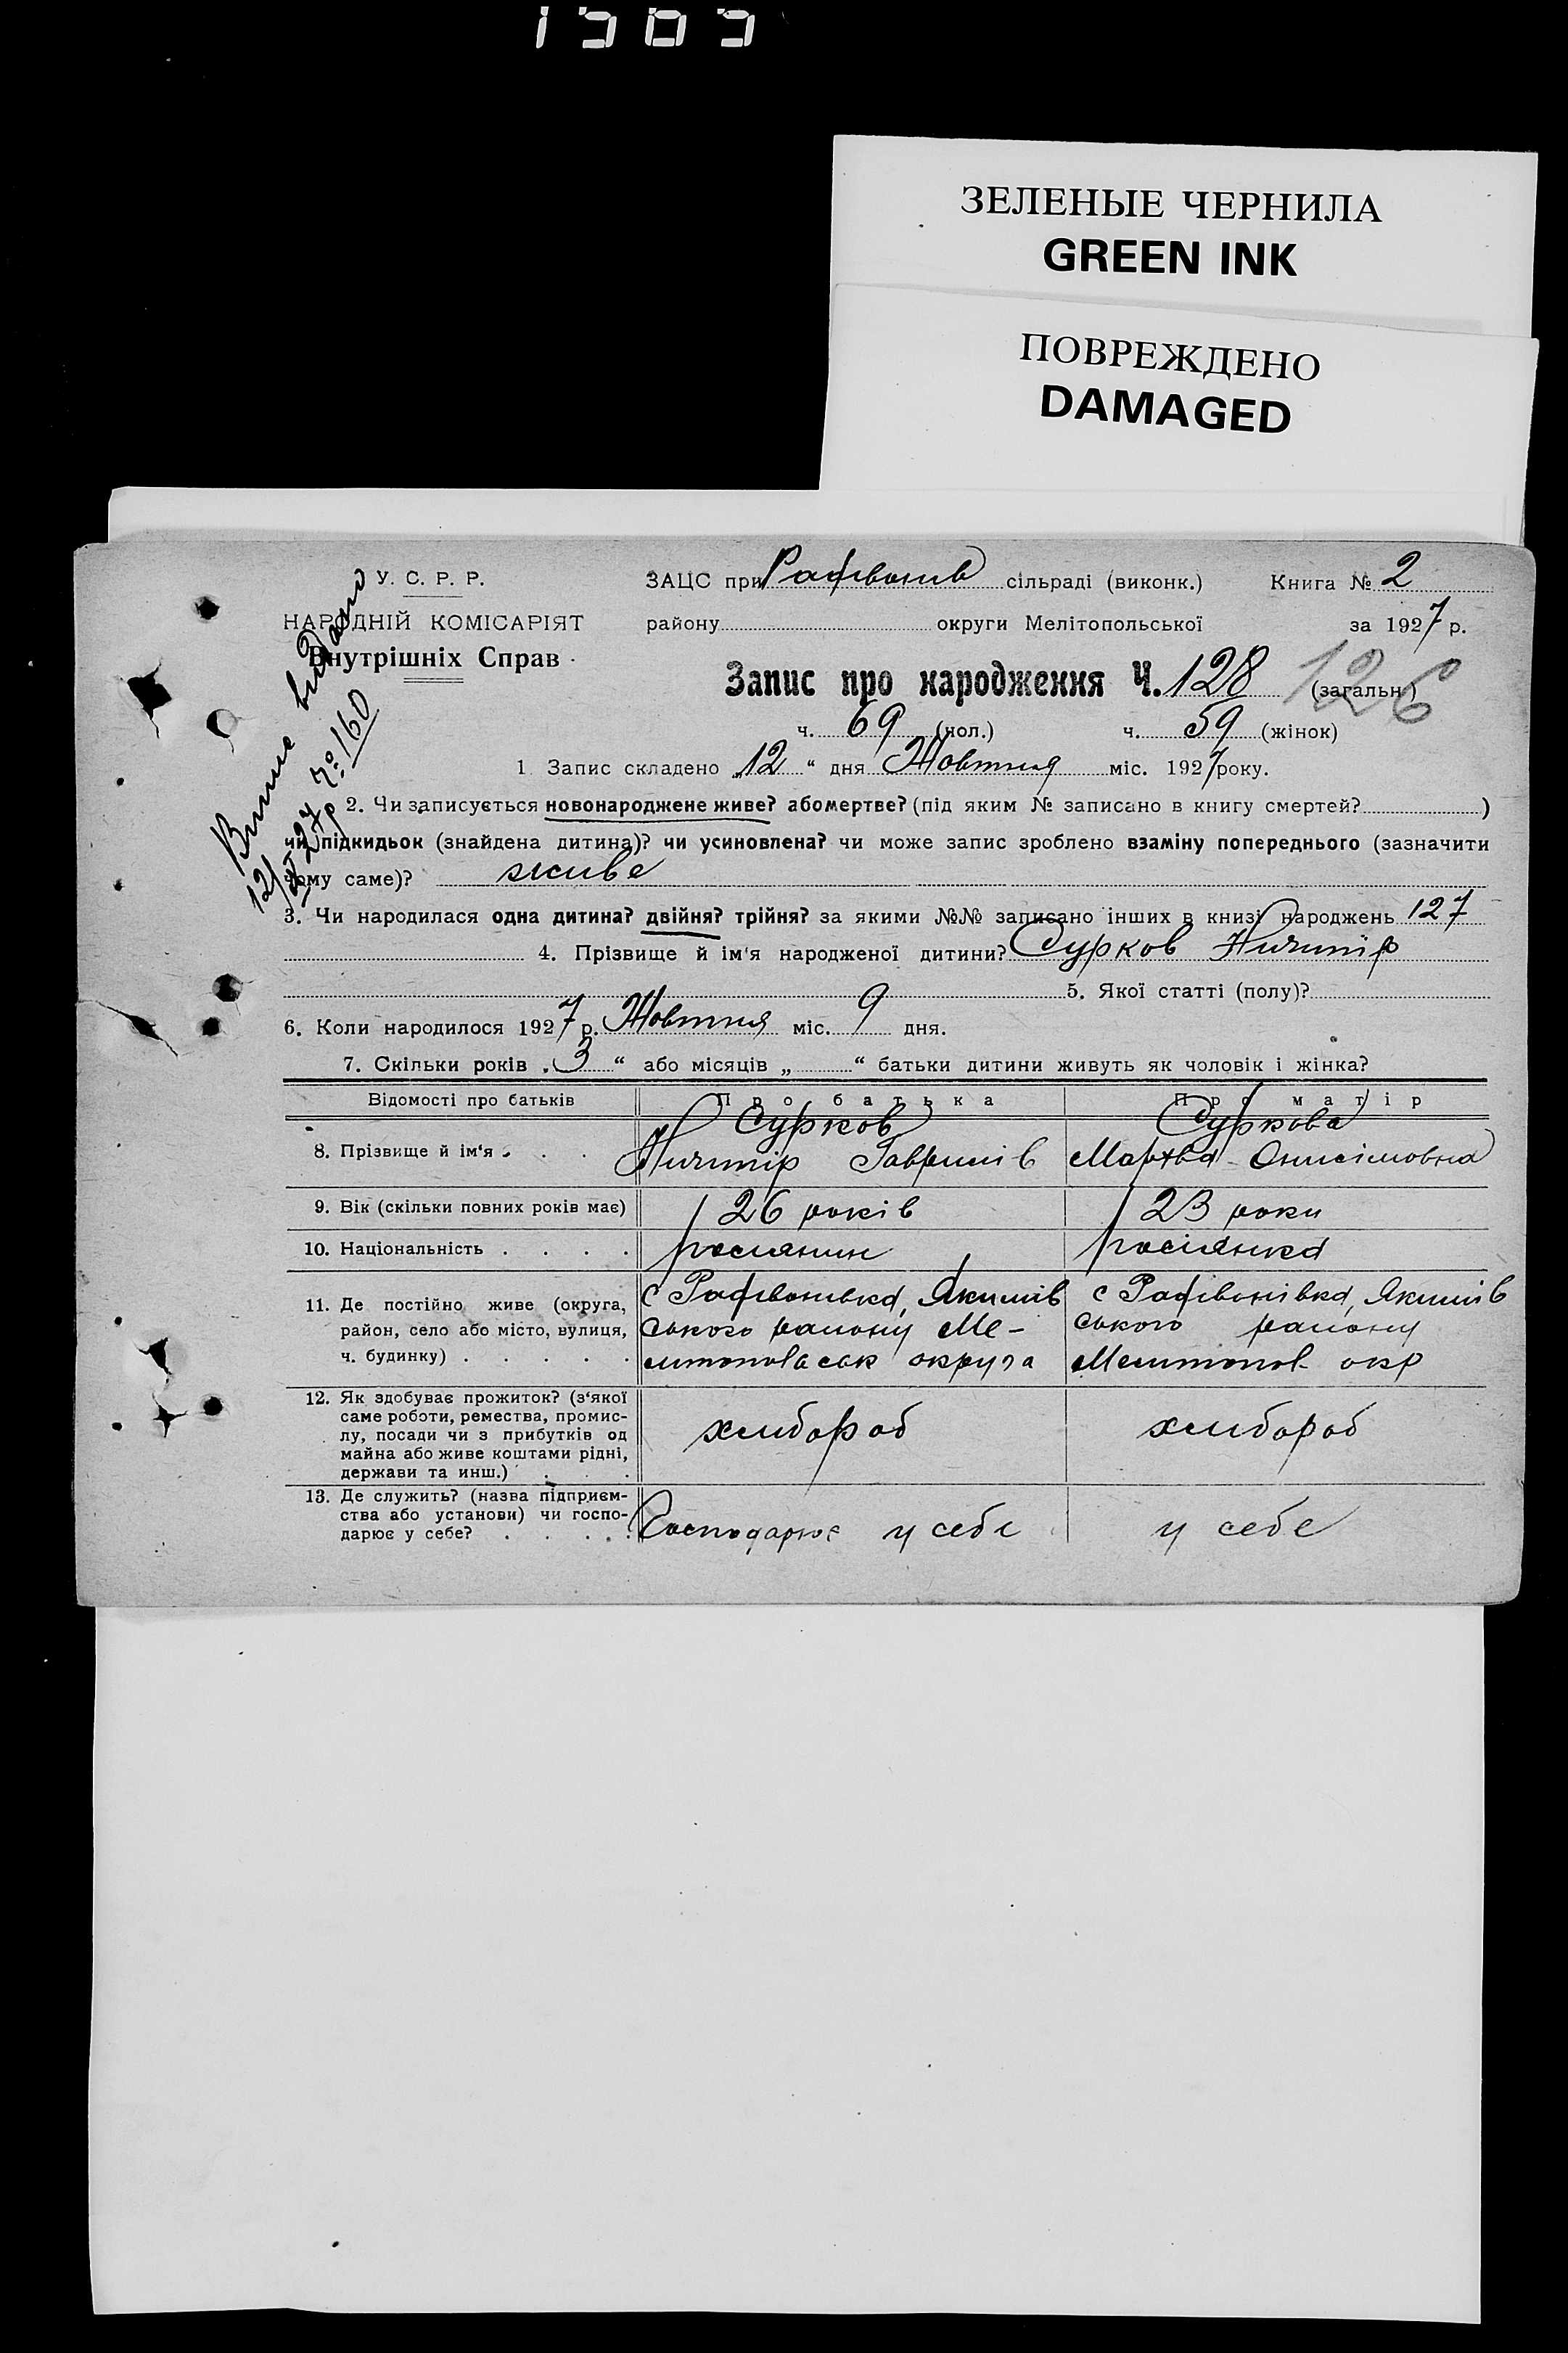 1505
ЗЕЛЕНЫЕ ЧЕРНИЛА
GREEN INK
ПОВРЕЖДЕНО
DAMAGED
У. С. Р. Р.
НАРОДНІЙ КОМІСАРІЯТ
Внутрішніх Справ
Випис видано
12/X 27 р № 160
ЗАЦС при Радівонів сільраді (виконк.) Книга № 2
району округи Мелітопольської за 1927 р.
Запис про народження Ч. 128 (загальн.) 126
ч. 69 (чол.) ч. 59 (жінок)
1 Запис складено „12“ дня Жовтня міс. 1927 року.
2. Чи записується новонароджене живе? або мертве? (під яким № записано в книгу смертей? )
чи підкидьок (знайдена дитина)? чи усиновлена? чи може запис зроблено взаміну попереднього (зазначити
чому саме)? живе
3. Чи народилася одна дитина? двійня? трійня? за якими №№ записано інших в книзі народжень 127
4. Прізвище й ім'я народженої дитини? Сурков Ничипір
5. Якої статті (полу)?
6. Коли народилося 1927 р. Жовтня міс. 9 дня.
7. Скільки років „3“ або місяців „ “ батьки дитини живуть як чоловік і жінка?
Відомості про батьків Про батька Про матір
8. Прізвище й ім'я . . . Сурков Суркова
Ничипір Гаврилів Мархва Онисімовна
9. Вік (скільки повних років має) 26 років 23 роки
10. Національність . . . . росиянин росіянка
11. Де постійно живе (округа, с Радівонівка, Якимів с Радівонівка, Якимів
район, село або місто, вулиця, ського району Ме- ського району
ч. будинку) . . . . . округа Мелитопол окр
12. Як здобуває прожиток? (з'якої
саме роботи, ремества, промис-
лу, посади чи з прибутків од хлибороб хлибороб
майна або живе коштами рідні,
держави та инш.) . . .
13. Де служить? (назва підприєм-
ства або установи) чи госпо-
дарює у себе? . . . . Господарює у себе у себе